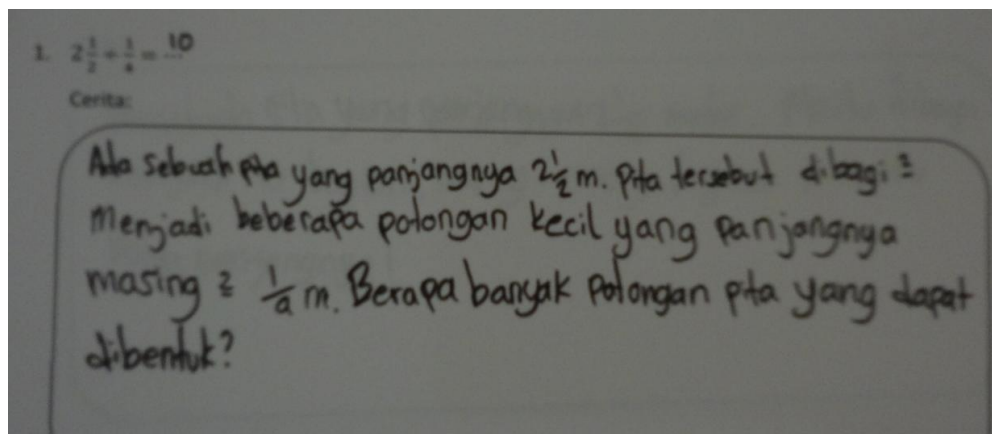 1. 2 1/2 ÷ 1/4 = 10
Cerita:
Ada sebuah pita yang panjangnya 2 1/2 m. Pita tersebut dibagi 2
menjadi beberapa potongan kecil yang panjangnya
masing 2 1/4 m. Berapa banyak potongan pita yang dapat
dibentuk?